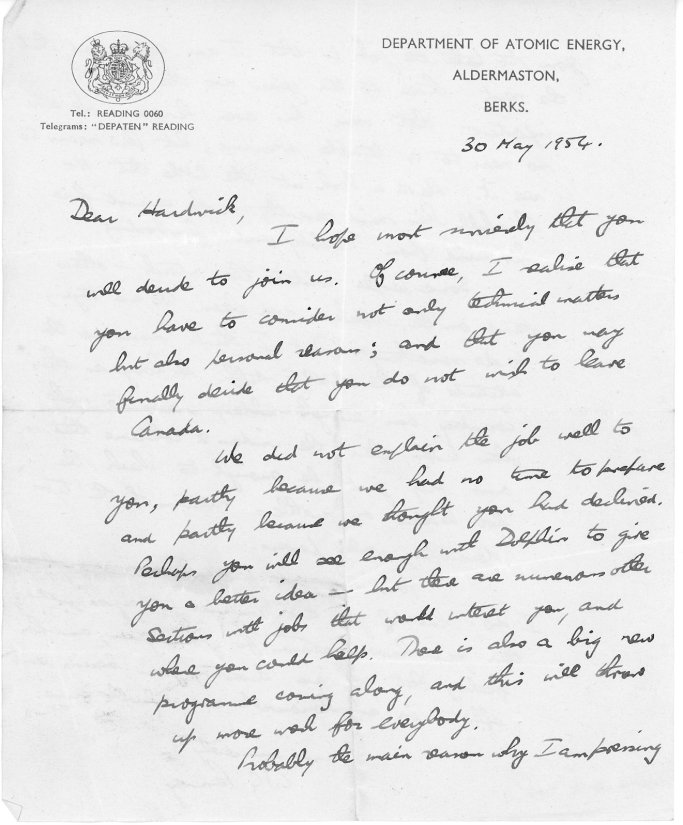 DEPARTMENT OF ATOMIC ENERGY,
ALDERMASTON,
BERKS.
Tel.: READING 0060
Telegrams: "DEPATEN" READING
30 May 1954.
Dear Hardwick,
I hope most sincerely that you
will decide to join us. Of course, I realise that
you have to consider not only technical matters
but also personal reasons; and that you may
finally decide that you do not wish to leave
Canada.
We did not explain the job well to
you, partly because we had no time to prepare
and partly because we thought you had declined.
Perhaps you will see enough with Dolphin to give
you a better idea — but there are numerous other
sections with jobs that would interest you, and
where you could help. There is also a big new
programme coming along, and this will throw
up more work for everybody.
Probably the main reason why I am pressing